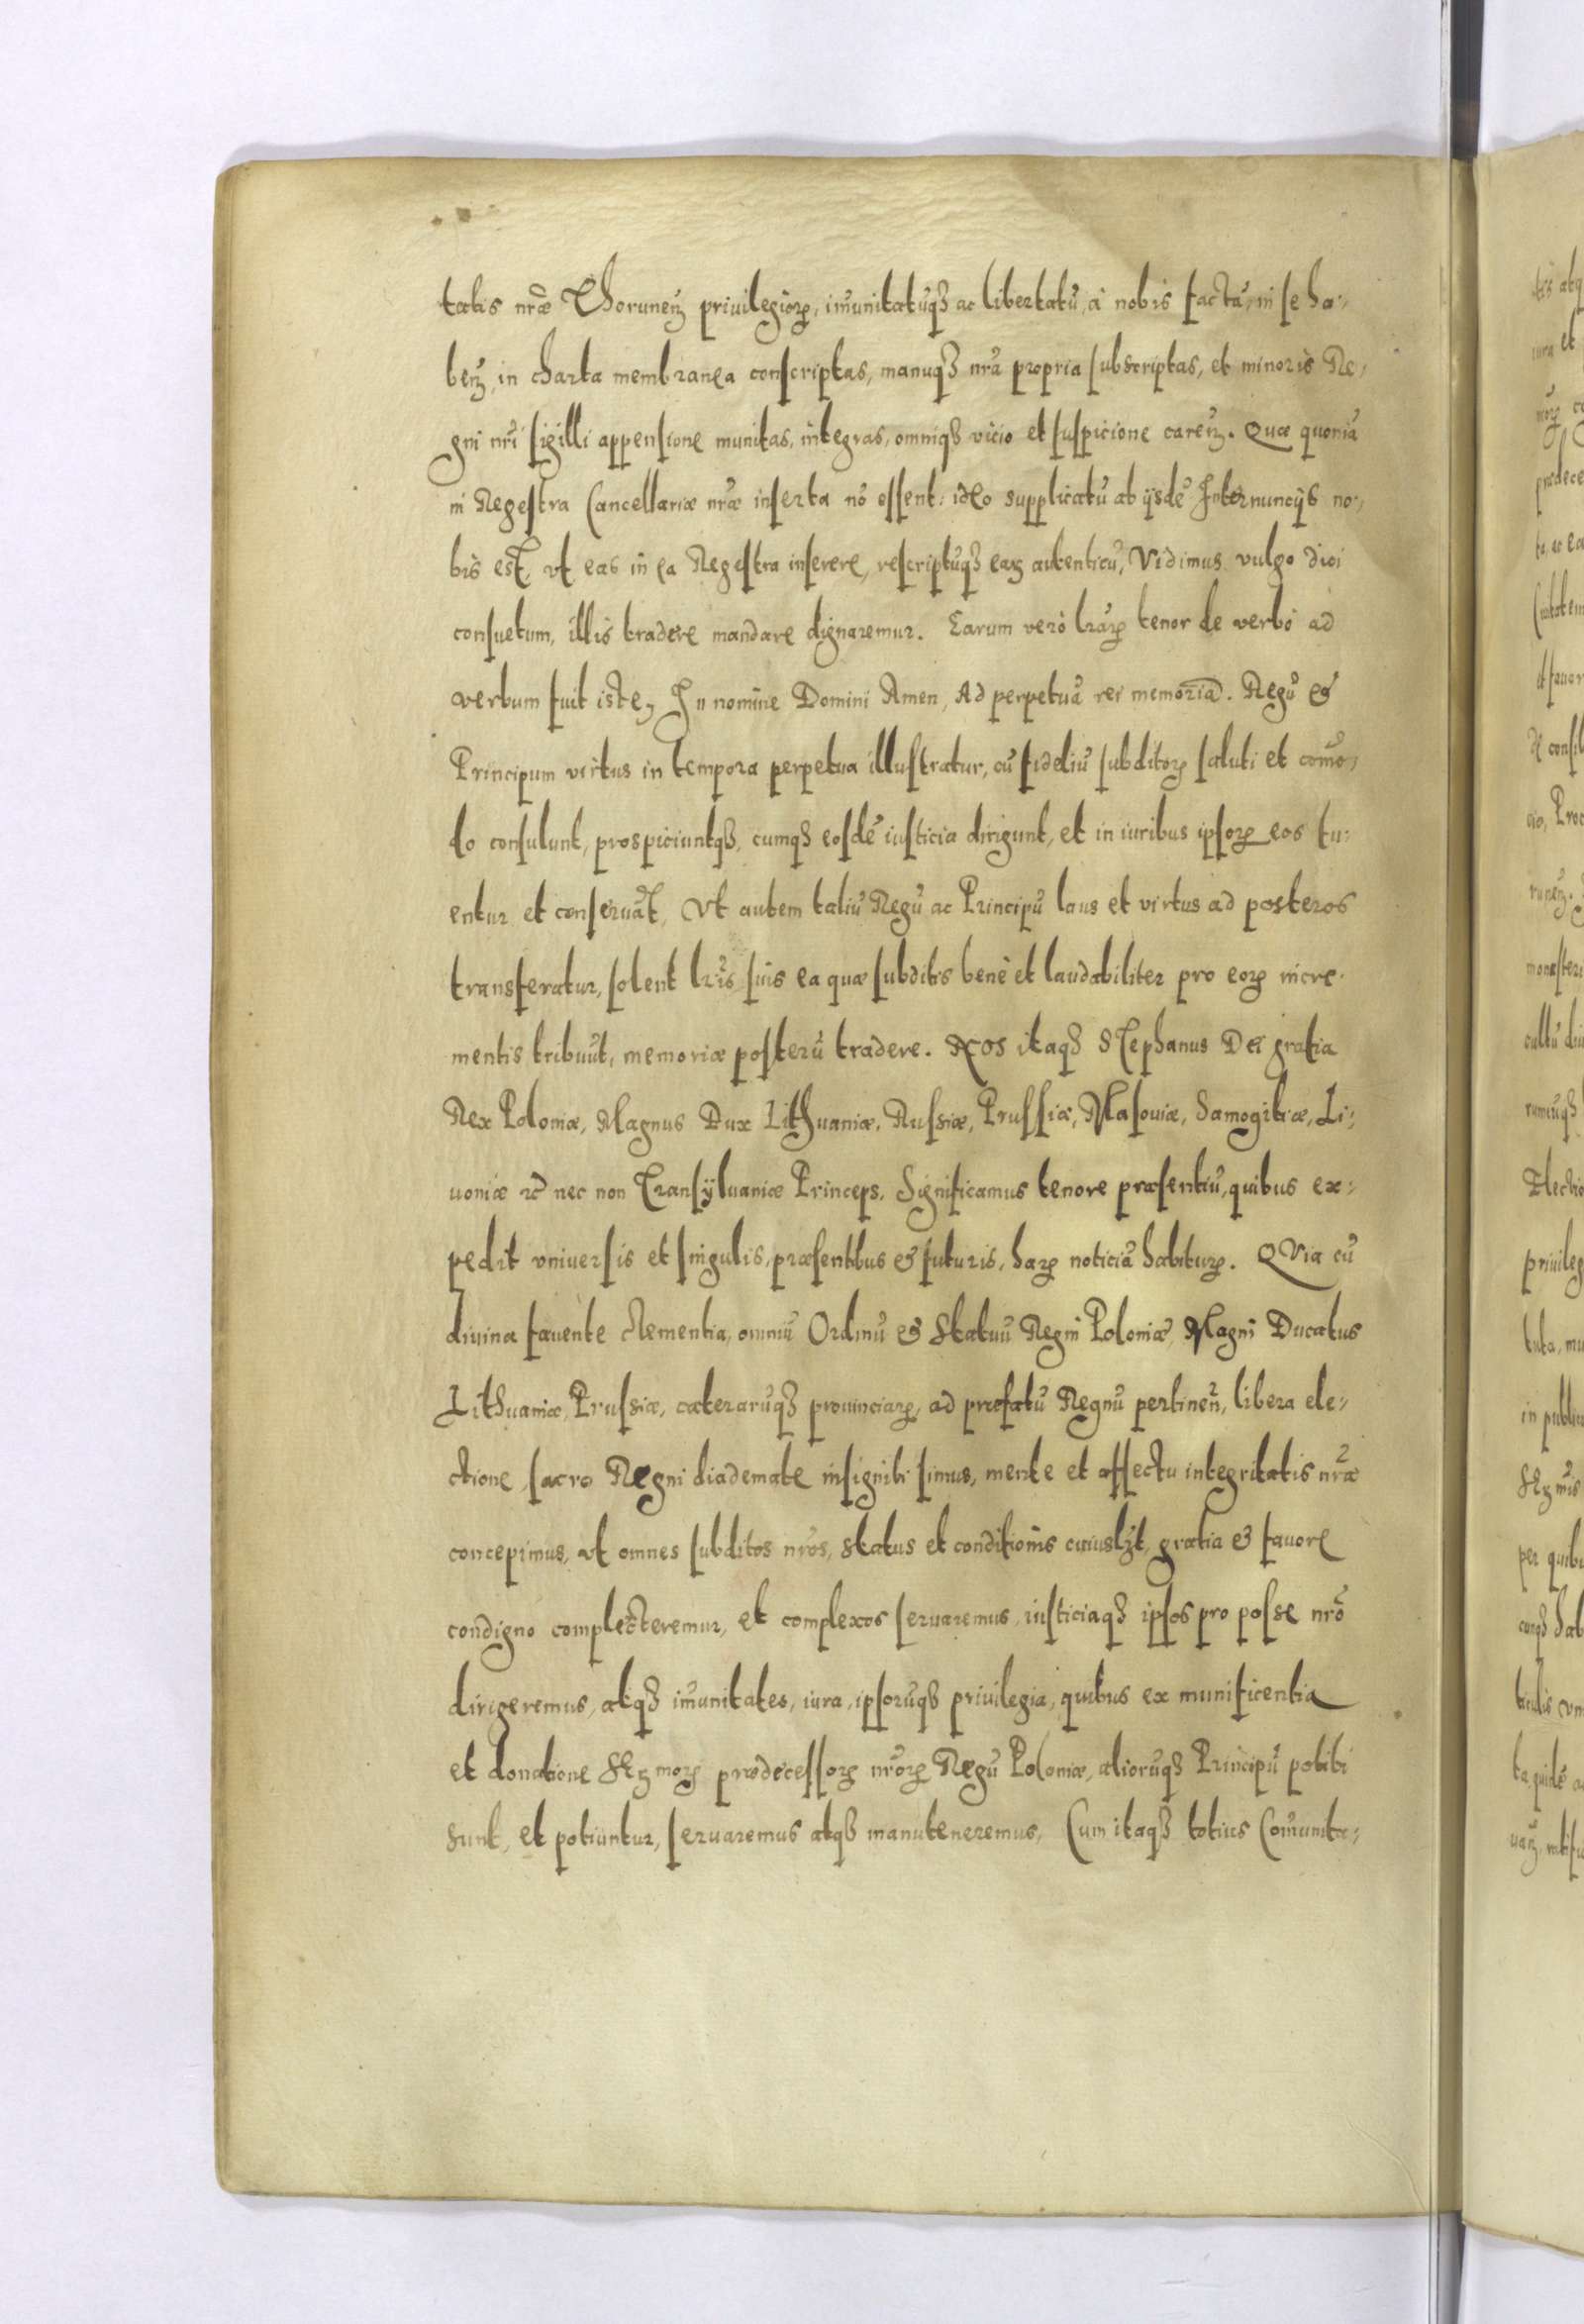 tatis nr̃æ Thoruneñ privilegiorꝝ, im̃unitatũqꝫ ac libertatũ, à nobis factã, in se ha-
benꝫ, in charta membranea conscriptas, manuqꝫ nr̃a propria subscriptas, et minoris Re-
gni nr̃i sigilli appensione munitas, integras, omniqꝫ vicio et suspicione carenꝫ. Quæ quoniã
in Regestra Cancellariæ nr̃æ inserta nõ essent: ideo supplicatũ ab ijsdẽ Internuncijs no-
bis est, vt eas in ea Regestra inserere, rescriptũqꝫ earꝫ autenticũ, Vidimus vulgo dici
consuetum, illis tradere mandare dignaremur. Earum verò lrãrꝝ tenor de verbo ad
verbum fuit iste, In nomine Domini Amen, Ad perpetuã rei memoriã. Regũ &
Principum virtus in tempora perpetua illustratur, cũ fideliũ subditorꝝ saluti et com̃o-
do consulunt, prospiciuntqꝫ, cumqꝫ eosdẽ iusticia dirigunt, et in iuribus ipsorꝝ eos tu-
entur et conseruãt, Vt autem taliũ Regũ ac Principũ laus et virtus ad posteros
transferatur, solent lr̃is suis ea quæ subditis benè et laudabiliter pro eorꝝ incre-
mentis tribuũt, memoriæ posterũ tradere. Nos itaqꝫ Stephanus Dei gratia
Rex Poloniæ, Magnus Dux Lithuaniæ, Russiæ, Prussiæ, Masouiæ, Samogitiæ, Li-
uoniæ ꝛc̃ nec non Transyluaniæ Princeps. Significamus tenore præsentiũ, quibus ex-
pedit vniuersis et singulis, præsentibus & futuris, harꝝ noticiã habiturꝝ. QVia cũ
divina fauente clementia, omniũ Ordinũ & Statuũ Regni Poloniæ, Magni Ducatus
Lithuaniæ, Prussiæ, cæterarũqꝫ prouinciarꝝ, ad præfatũ Regnũ pertineñ, libera ele-
ctione, sacro Regni diademate insigniti simus, mente et affectu integritatis nr̃æ
concepimus, vt omnes subditos nr̃os, status et conditionis cuiuslꝫt, gratia & fauore
condigno complecteremur, et complexos seruaremus, iusticiaqꝫ ipsos pro posse nr̃o
dirigeremus, atqꝫ im̃unitates, iura, ipsorũqꝫ priuilegia, quibus ex munificentia
et donatione Seꝫmorꝝ prædecessorꝝ nr̃orꝝ Regũ Poloniæ, aliorũqꝫ Principũ potiti
sunt, et potiuntur, seruaremus atqꝫ manuteneremus, Cum itaqꝫ totius Com̃unita-